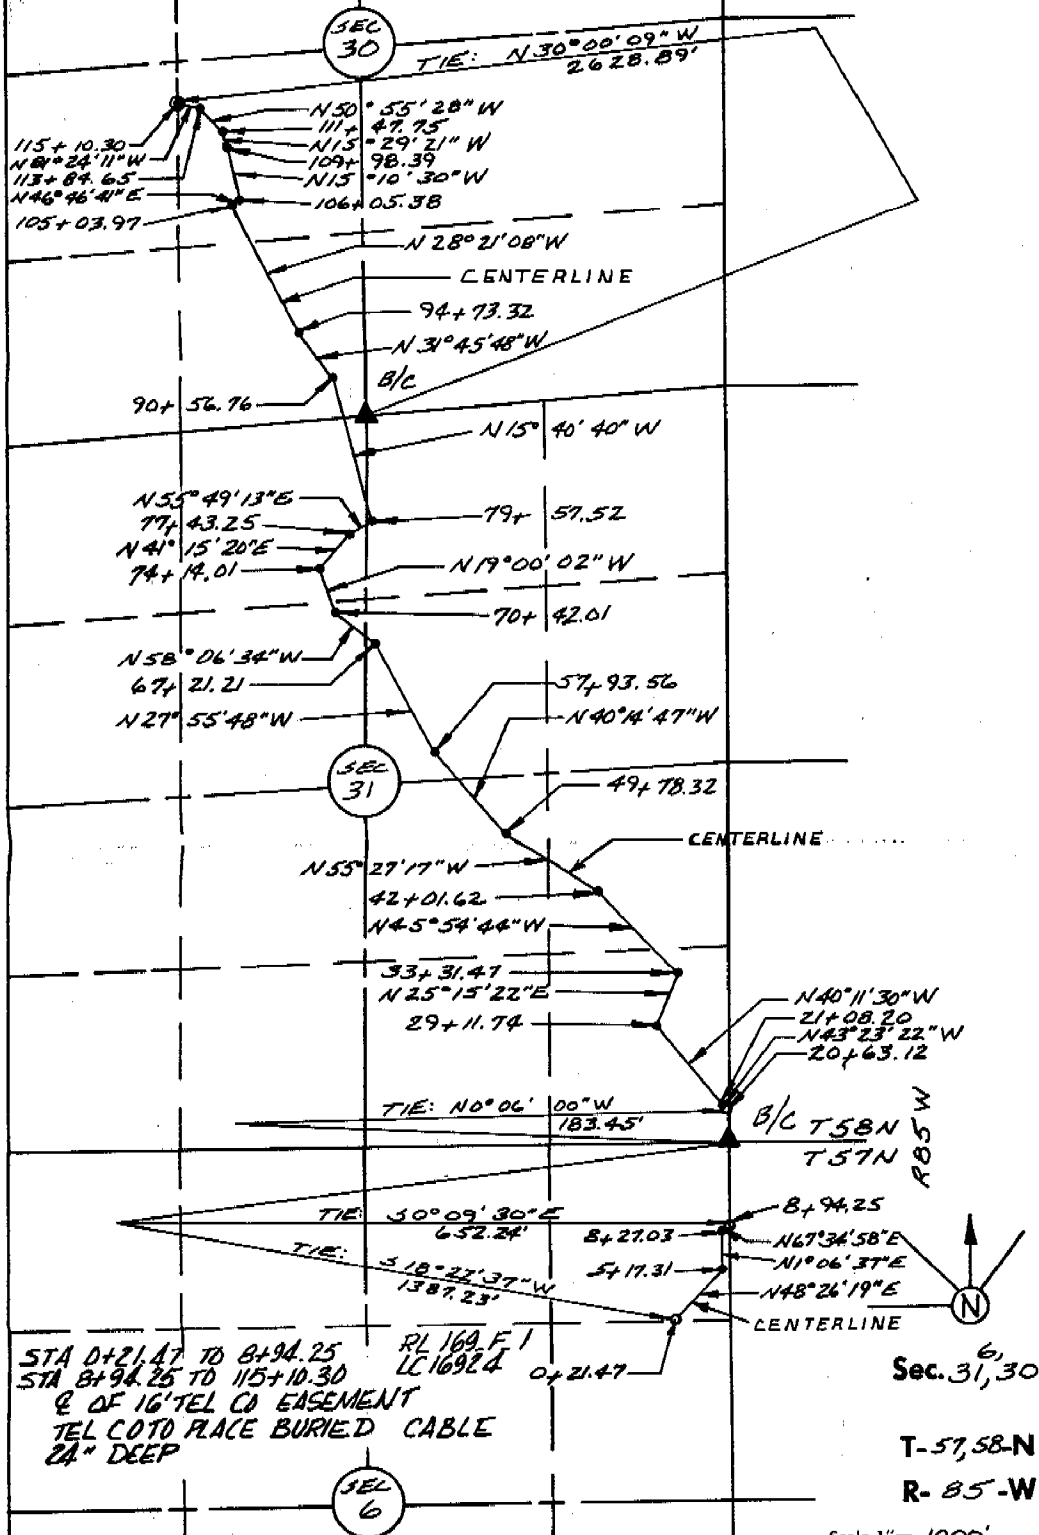 SEC
30
TIE: N 30°00'09" W
2628.89'
N50°55'28"W
111+47.75
N15°29'21"W
109+98.39
N15°10'30"W
106+05.38
115+10.30
N81°24'11"W
113+84.65
N46°46'41"E
105+03.97
N 28°21'08"W
CENTERLINE
94+73.32
N 31°45'48"W
B/C
90+56.76
N15°40'40"W
N55°49'13"E
77+43.25
N41°15'20"E
74+14.01
79+57.52
N19°00'02"W
70+42.01
N58°06'34"W
67+21.21
N27°55'48"W
57+93.56
N40°14'47"W
SEC
31
49+78.32
CENTERLINE
N55°27'17"W
42+01.62
N45°54'44"W
33+31.47
N25°15'22"E
29+11.74
N40°11'30"W
21+08.20
N43°23'22"W
20+63.12
TIE: N0°06'00"W
183.45'
B/C
T58N
T57N
R85W
TIE: S0°09'30"E
652.24'
8+94.25
8+27.03
N67°34'58"E
N1°06'37"E
TIE: S18°22'37"W
1387.23'
5+17.31
N48°26'19"E
CENTERLINE
N
0+21.47
STA 0+21.47 TO 8+94.25
STA 8+94.25 TO 115+10.30
RL 169 F 1
LC16924
℄ OF 16' TEL CO EASEMENT
TEL CO TO PLACE BURIED CABLE
24" DEEP
SEC
6
6,
Sec. 31, 30
T-57,58-N
R-85-W
Scale 1" = 1000'